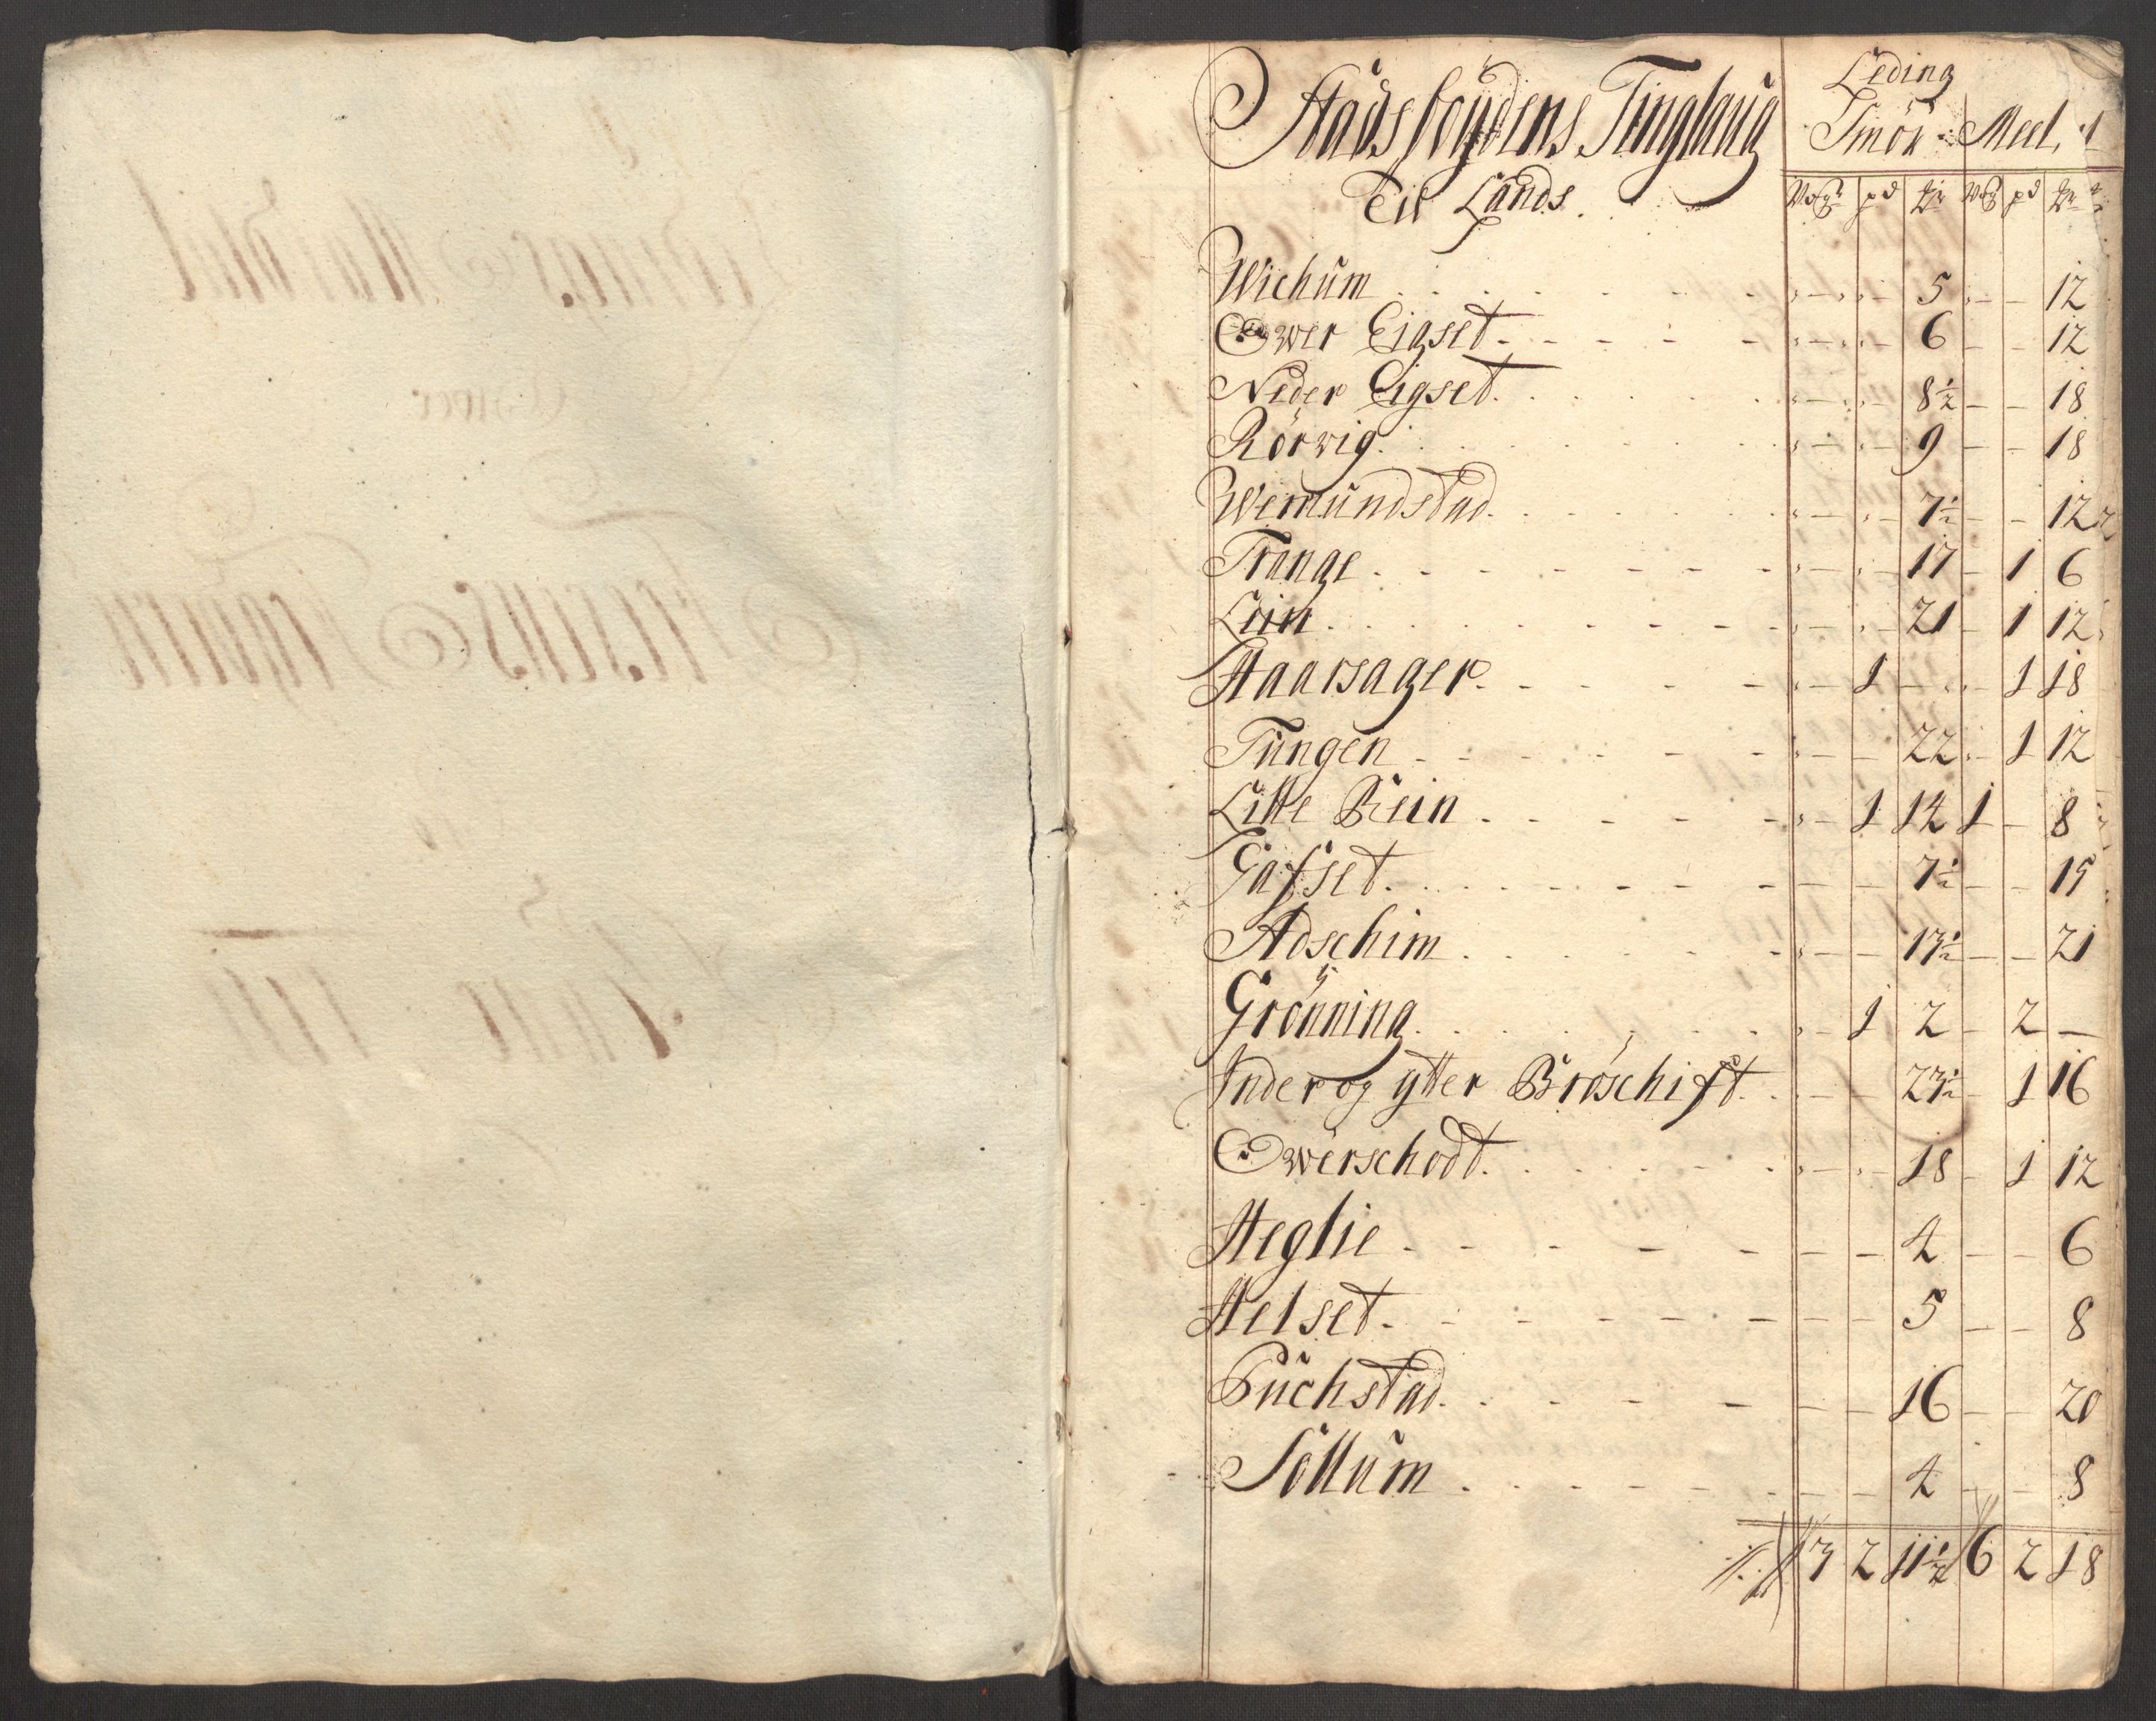 Stadsboÿdens Tinglaug
Til Lands.
Leding
Smör. Meel.
Wog pd Mk Wog pd Mk
Wichum 5 12
Ower Eigset 6 12
Neder Eigset 8½ 18
Rörwig 9 18
Wemundstad 7½ 12
Trange 17 1 6
Lein 21 1 12
Haarsager 1 1 18
Tungen 22 1 12
Litle Rein 1 14 1 8
Gafset 7½ 15
Adschim 13½ 21
Grönning 1 2 2
Inder og ÿtter Bröschift 23½ 1 16
Owerschott 18 1 12
Heglie 4 6
Helset 5 8
Buchstad 16 20
Söllum 4 8
3 2 11½ 6 2 18